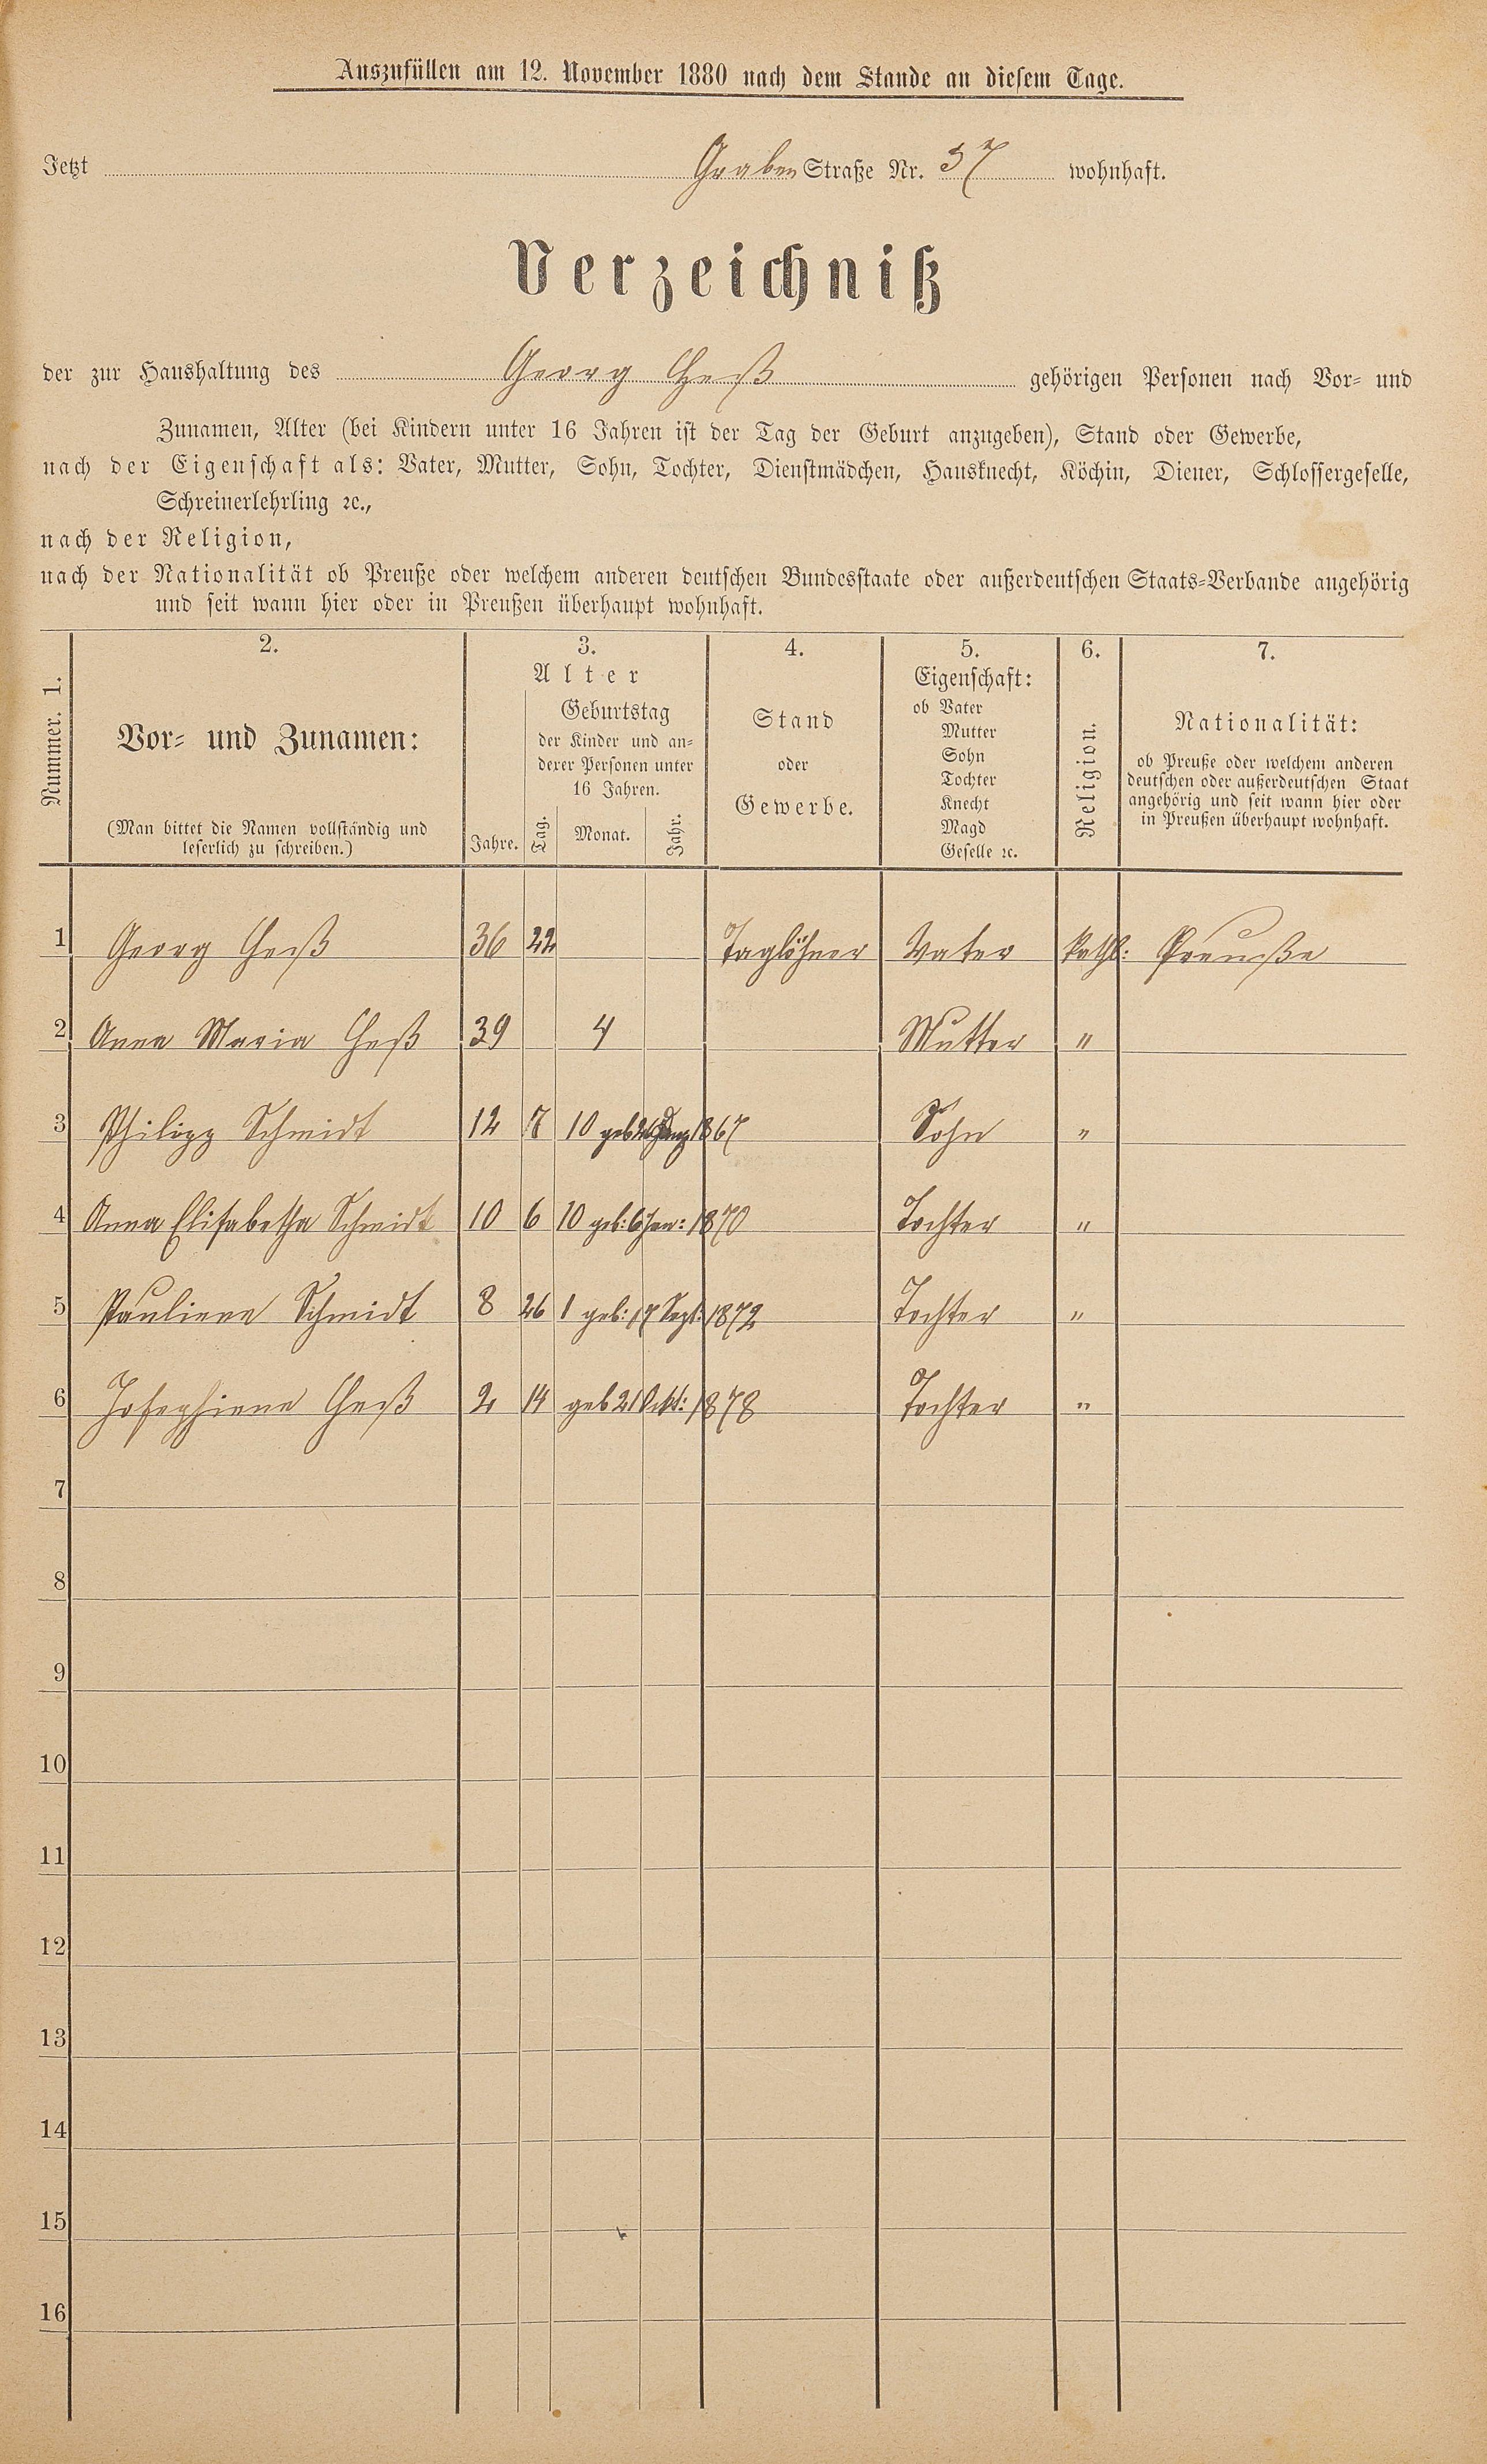 Auszufüllen am 12. November 1880 nach dem Stande an diesem Tage.
Jetzt Graben Straße Nr. 37 wohnhaft.
Verzeichniß
der zur Haushaltung des Georg Heß gehörigen Personen nach Vor- und
Zunamen, Alter (bei Kindern unter 16 Jahren ist der Tag der Geburt anzugeben), Stand oder Gewerbe,
nach der Eigenschaft als: Vater, Mutter, Sohn, Tochter, Dienstmädchen, Hausknecht, Köchin, Diener, Schlossergeselle,
Schreinerlehrling ꝛc.,
nach der Religion,
nach der Nationalität ob Preuße oder welchem anderen deutschen Bundesstaate oder außerdeutschen Staats-Verbande angehörig
und seit wann hier oder in Preußen überhaupt wohnhaft.
Nummer. 1.
2.
Vor- und Zunamen:
(Man bittet die Namen vollständig und
leserlich zu schreiben.)
3.
Alter
Geburtstag
der Kinder und an-
derer Personen unter
16 Jahren.
Jahre. Tag. Monat. Jahr.
4.
Stand
oder
Gewerbe.
5.
Eigenschaft:
ob Vater
Mutter
Sohn
Tochter
Knecht
Magd
Geselle ꝛc.
6.
Religion.
7.
Nationalität:
ob Preuße oder welchem anderen
deutschen oder außerdeutschen Staat
angehörig und seit wann hier oder
in Preußen überhaupt wohnhaft.
1 Georg Heß 36 22 Taglöhner Vater kathl: Preuße
2 Anna Maria Heß 39 4 Mutter "
3 Philipp Schmidt 12 7 10 geb 1867 Sohn "
4 Anna Elisabetha Schmidt 10 6 10 geb: 6 Jan: 1870 Tochter "
5 Pauliene Schmidt 8 26 1 geb: 17 Sept: 1872 Tochter "
6 Josephiene Heß 2 14 geb 21 Okt: 1878 Tochter "
7
8
9
10
11
12
13
14
15
16